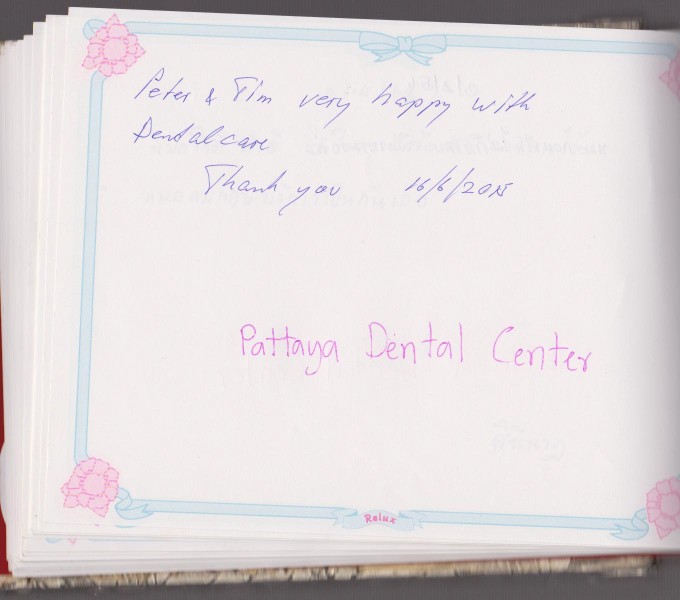 Peter & Tim very happy with
Dental care
Thank you 16/6/2015
Pattaya Dental Center
Relux